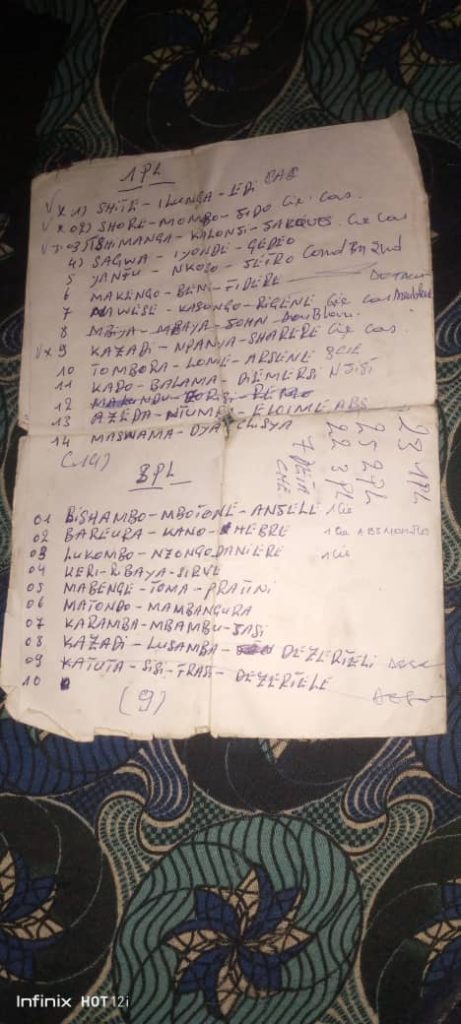 1PL
√x 1) SHITE - ILUNGA - EDI CAC
√x 02) SHORE - MOMBO - SIDO Cie cas.
TSHIMANGA - KALONJI - JARQUES. Cie Cas
4) SAGWA - IYONDE - GEDEO
5 YANTU - NKOSO - JETRO Cond Bn 2nd
6 MAKENGO - BEN - FIDERE
7 MAWESE - KASONGO - RIGENE Cie cas
8 MBIYA - MBAYA - JOHN
√x 9 KAZADI - NPANYA - SHARERE Cie cas.
10 TOMBORA - LOME - ARSENE
11 KADO - BALAMA - DIEMERSI NJIJI
12
13 AZEDA - NTUMBA - ELOIME ABS
14 MASWAMA - DYA - CHISYA
(14)
23 1PL
25 2PL
22 3PL
7 DETA CHE
3PL
01 BISHAMBO - MBOTONE - ANSELE 1Cie
02 BAREURA - KANO - HEBRE 1Cie ABS
03 LUKOMBO - NZONGO DANIERE 1Cie
04 KERI - RIBAYA - SIRVE
05 MABENGE - TOMA - PRATINI
06 MATONDO - MAMBANGURA
07 KARAMBA - MBAMBU - SASI
08 KAZADI - LUSAMBA - DEZERTELI
09 KATUTA - SISI - TRASI - DEZERTELE
10
(9)
Infinix HOT 12i